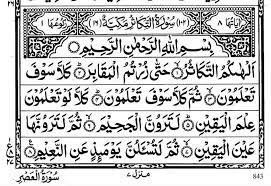 اٰيَاتُهَا ٨ (١٠٢) سُوْرَةُ التَّكَاثُرِ مَكِّيَّةٌ (١٦) رُكُوْعُهَا ١
بِسْمِ اللّٰهِ الرَّحْمٰنِ الرَّحِيْمِ
اَلْهٰىكُمُ التَّكَاثُرُ حَتّٰى زُرْتُمُ الْمَقَابِرَ كَلَّا سَوْفَ
تَعْلَمُوْنَ ثُمَّ كَلَّا سَوْفَ تَعْلَمُوْنَ كَلَّا لَوْ تَعْلَمُوْنَ
عِلْمَ الْيَقِيْنِ لَتَرَوُنَّ الْجَحِيْمَ ثُمَّ لَتَرَوُنَّهَا
عَيْنَ الْيَقِيْنِ ثُمَّ لَتُسْـَٔلُنَّ يَوْمَىِٕذٍ عَنِ النَّعِيْمِ
سُوْرَةُ الْعَصْرِ منزل ٧ 843